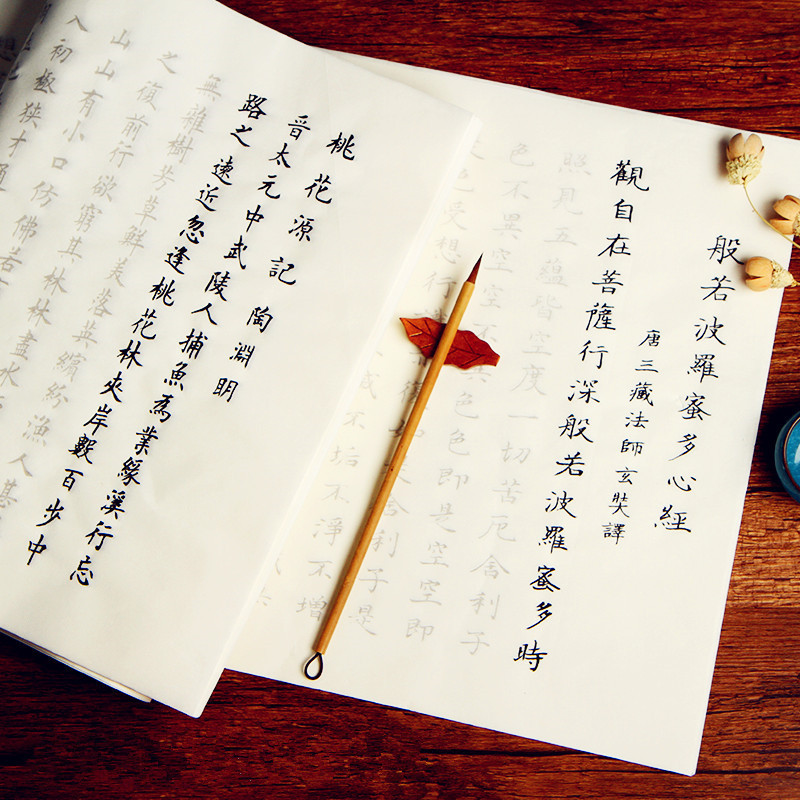 般若波羅蜜多心經
唐三藏法師玄奘譯
觀自在菩薩行深般若波羅蜜多時
照見五蘊皆空度一切苦厄舍利子
色不異空空不異色色即是空空即
色受想行復如舍利子是
不垢不淨不增
桃花源記陶淵明
晋太元中武陵人捕魚為業緣溪行忘
路之遠近忽逢桃花林夾岸數百步中
無雜樹芳草鮮美落英繽紛漁人甚
之復前行欲窮其林林盡水
山山有小口仿佛若
入初極狹才通